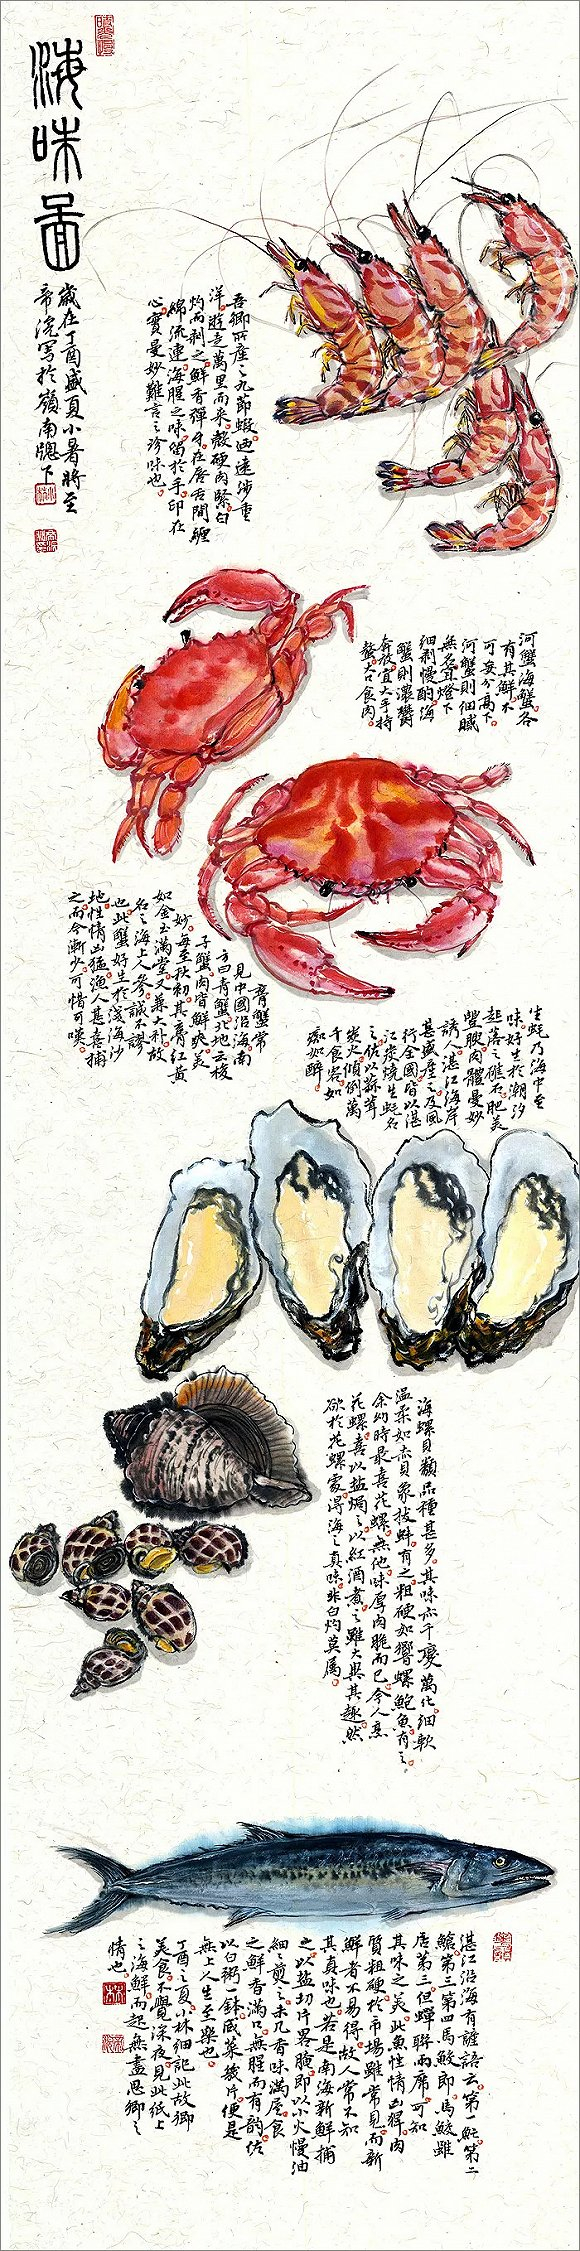 海味圖
歲在丁酉盛夏小暑將至
帝浣寫於嶺南牕下
吾鄉所產之九節蝦迺遠涉重
洋遊走萬里而來殼硬肉緊白
灼而剥之鮮香彈牙在唇舌間纏
綿流連海腥之味留於手印在
心實曼妙難言之珍味也
河蟹海蟹各
有其鮮本
可妄分高下
河蟹則細膩
無名耳燈下
細剥慢酌海
蟹則濃鬱
奔放宜大手持
螯大口食肉
膏蟹常
見中國沿海南
方曰青蟹北地云梭
子蟹肉皆鮮爽美
妙每至秋初其膏紅黃
如金玉滿堂又兼大補故
名之海上人參誠不謬
也此蟹好生於淺海沙
地性情凶猛漁人甚喜捕
之而今漸少可惜可嘆
生蚝乃海中至
味好生於潮汐
起落之礁石肥美
豐腴肉體曼妙
誘人湛江海岸
甚盛產之及風
行全國皆以湛
江炭燒生蚝名
之佐以蒜茸
炭火傾倒萬
千食客如
痴如醉
海螺貝類品種甚多其味亦千變萬化細軟
温柔如赤貝象拔蚌有之粗硬如響螺鮑魚有之
余幼時最喜花螺無他味厚肉脆而已今人烹
花螺喜以盐焗之以紅酒煮之雖大與其趣然
欲於花螺處得海之真味非白灼莫屬
湛江沿海有諺語云第一魠第二
鯧第三第四馬鮫郎馬鮫雖
居第三但蟬聯兩席可知
其味之美此魚性情凶猂肉
質粗硬於市場雖常見而新
鮮者不易得故人常不知
其真味也若是南海新鮮捕
之以盐切片畧腌即以小火慢油
細細煎之未几香味滿屋食
之鮮香滿口無腥而有韵佐
以白粥一鉢咸菜幾片便是
無上人生至樂也
丁酉之夏小林細記此故鄉
美食不覺深夜見此紙上
之海鮮而起無盡思鄉之
情也